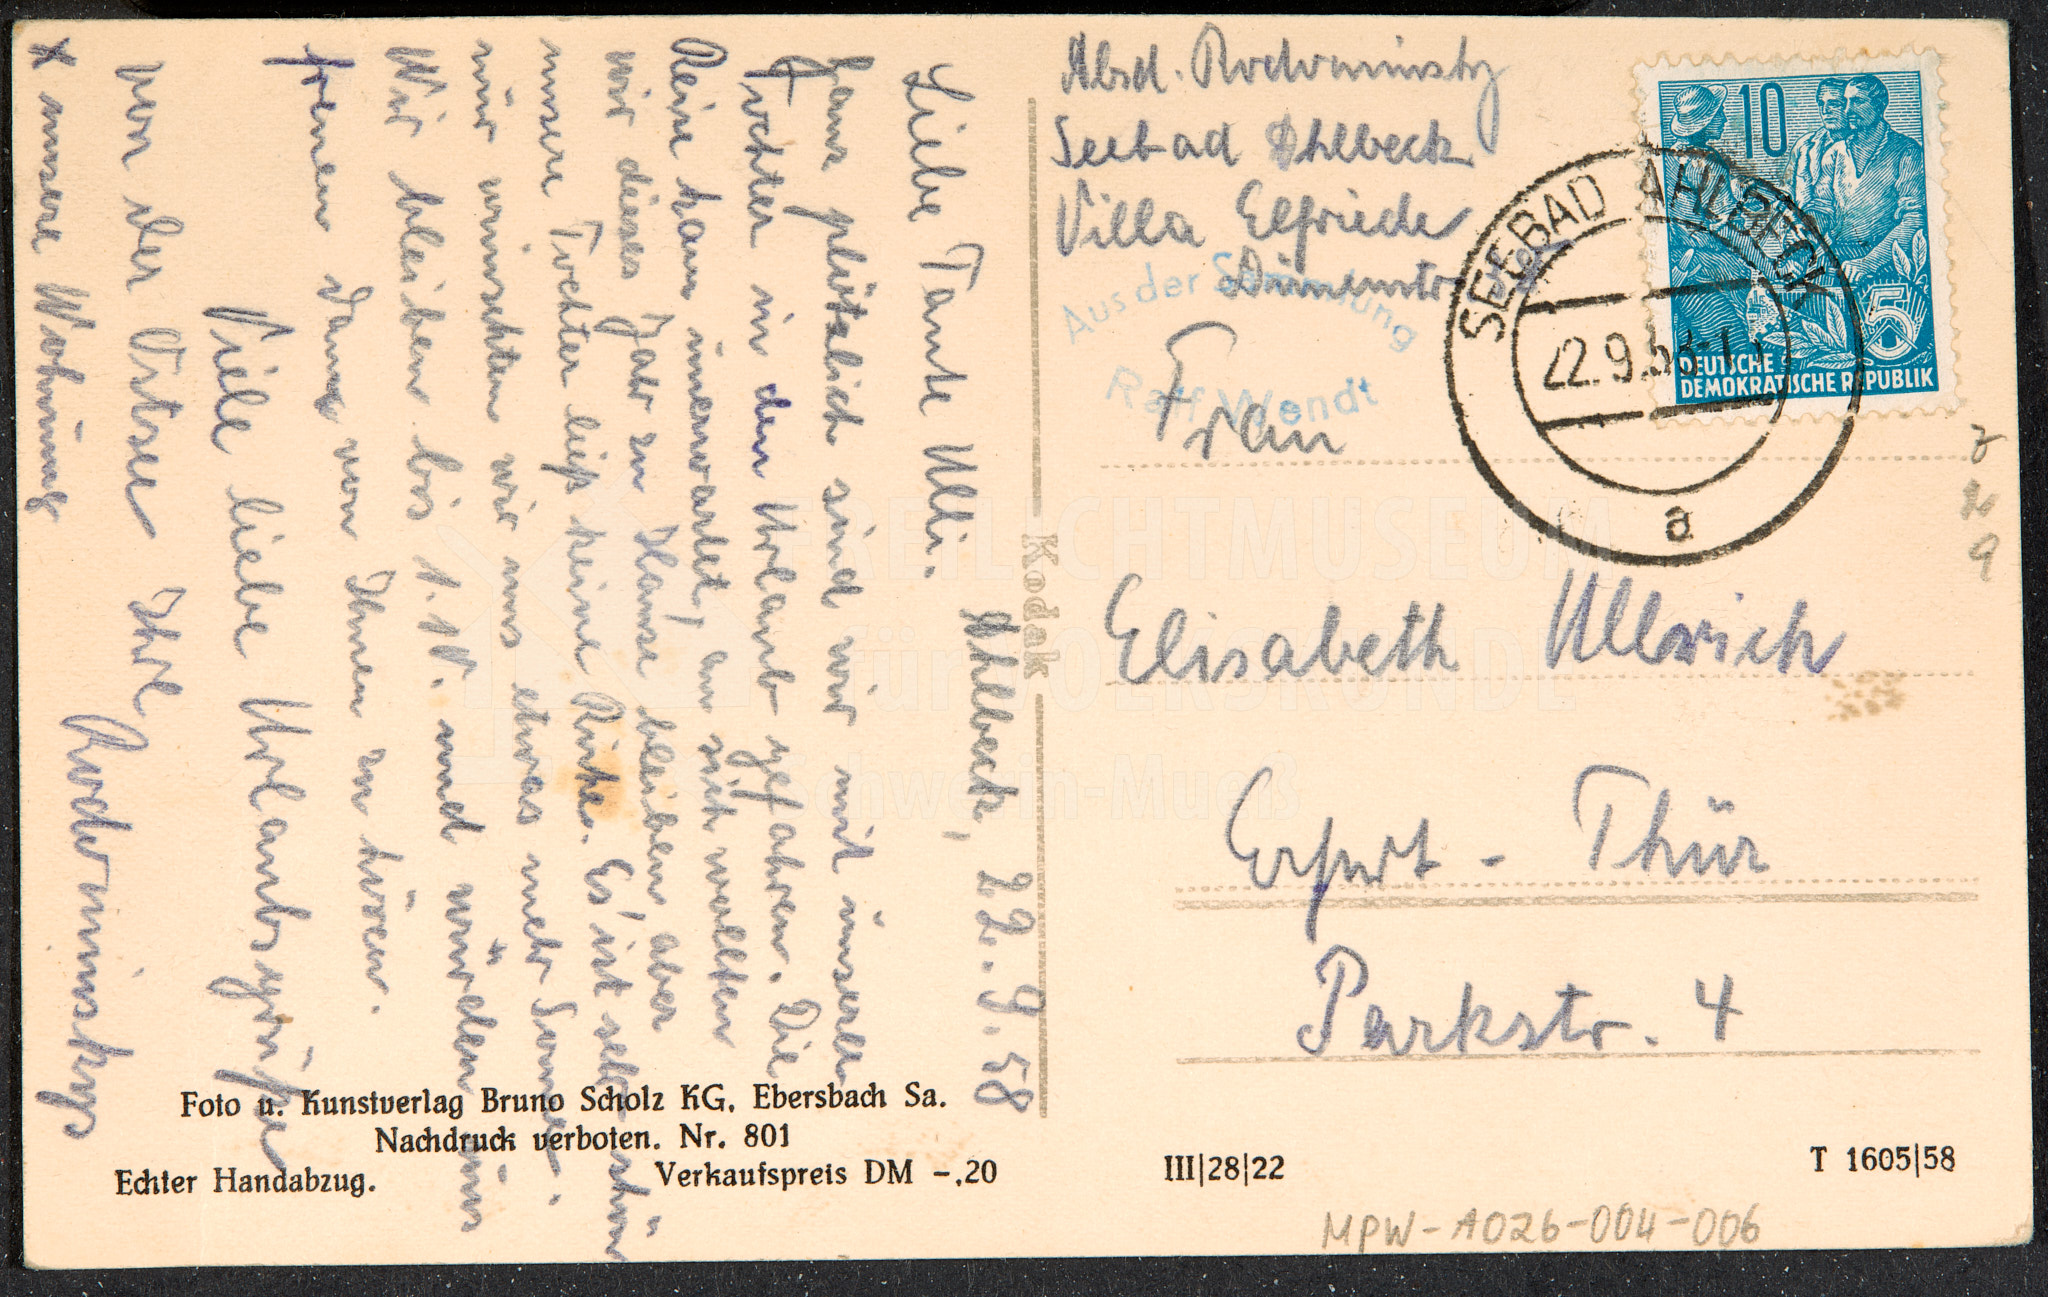 Ahlbeck, 22.9.58
Liebe Tante Ulli.
Ganz plötzlich sind wir mit unserer
Tochter in den Urlaub gefahren. Die
Reise kam unerwartet, an sich wollten
wir dieses Jahr zu Hause bleiben aber
unsere Tochter ließ keine Ruhe. Es ist sehr schön
nur wünschten wir uns etwas mehr Sonne.
Wir bleiben bis 1.10. und würden uns
freuen dann von Ihnen zu hören.
Viele liebe Urlaubsgrüße
von der Ostsee Ihre
Rodominsky's
x unsere Wohnung
Foto u. Kunstverlag Bruno Scholz KG, Ebersbach Sa.
Nachdruck verboten. Nr. 801
Echter Handabzug. Verkaufspreis DM -,20
Kodak
Absd. Rodominsky
Seebad Ahlbeck
Villa Elfriede
Dünenstr.
Aus der Sammlung
Ralf Wendt
Frau
Elisabeth Ullrich
Erfurt - Thür
Parkstr. 4
10
5
DEUTSCHE
DEMOKRATISCHE REPUBLIK
SEEBAD AHLBECK
22.9.58-15
a
III|28|22
T 1605|58
MPW-A026-004-006
FREILICHTMUSEUM
für VOLKSKUNDE
Schwerin-Mueß